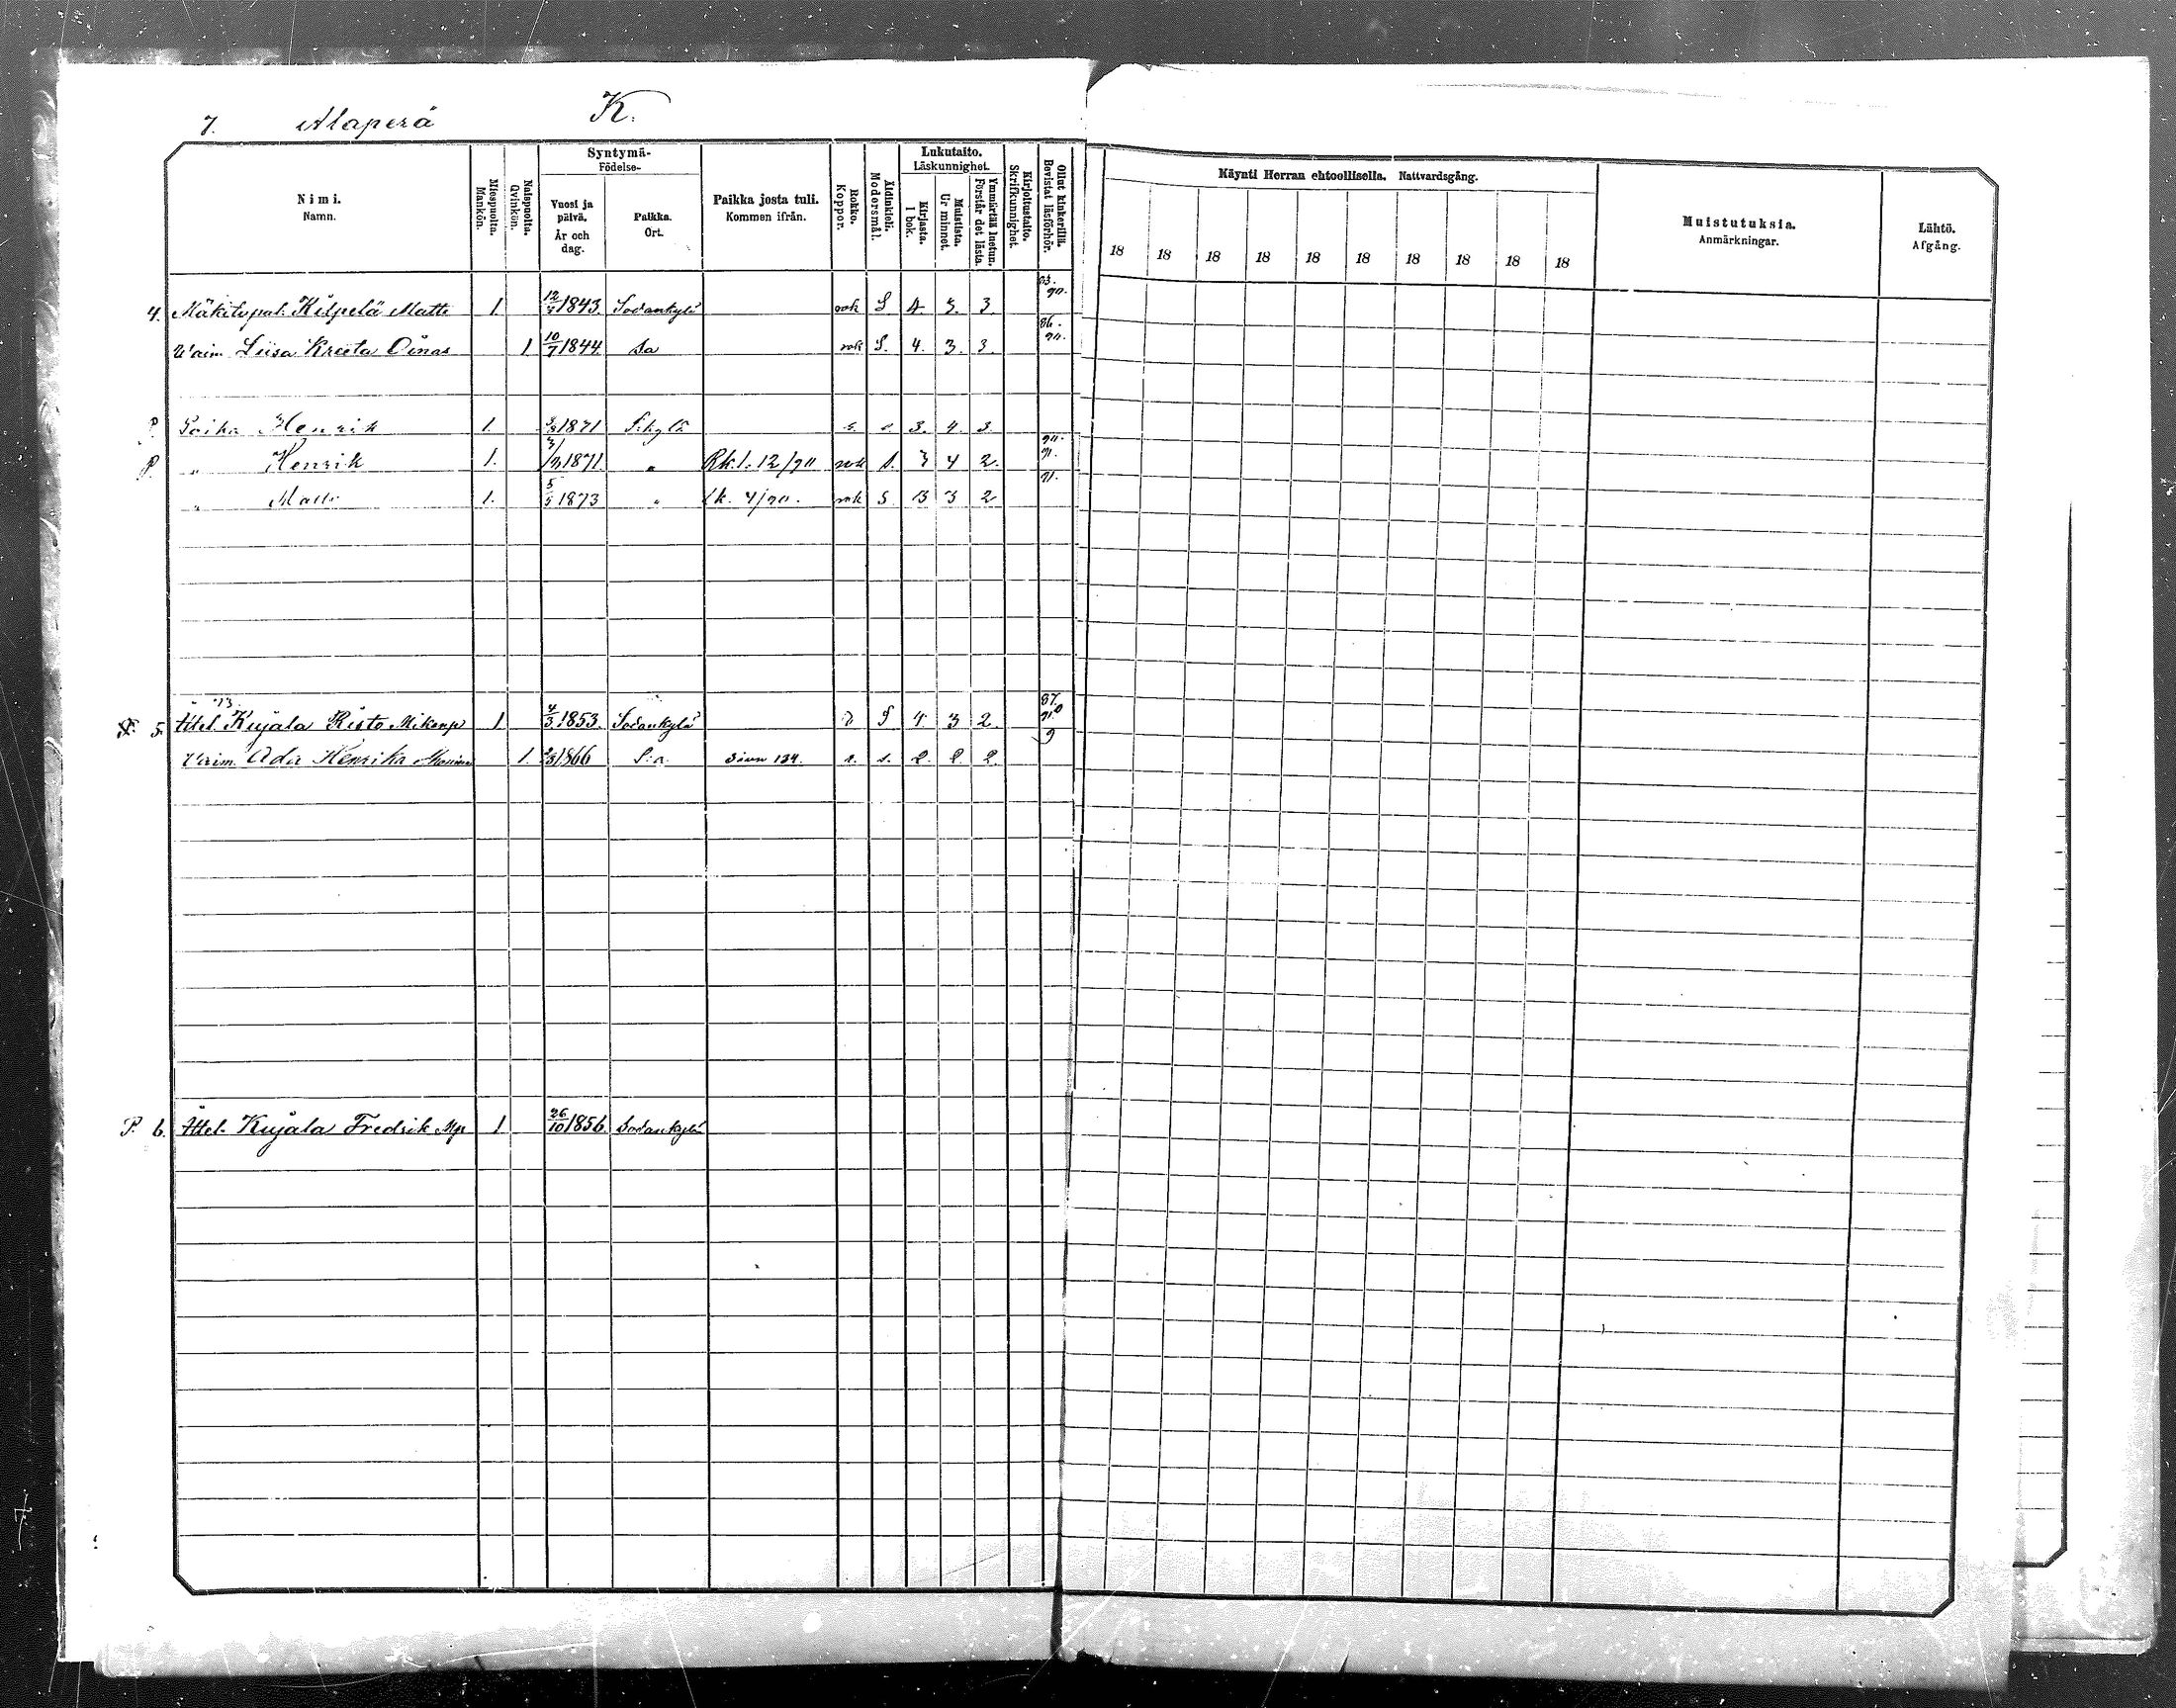 7. Alaperä K.
Syntymä-
Födelse-
Lukutaito.
Läskunnighet.
Nimi.
Namn.
Miespuolta.
Mankön.
Naispuolta.
Qvinkön.
Vuosi ja päivä.
År och dag.
Paikka.
Ort.
Paikka josta tuli.
Kommen ifrån.
Rokko.
Koppor.
Äidinkieli.
Modersmål.
Kirjasta.
I bok.
Muistista.
Ur minnet.
Ymmärtää luetun.
Förstår det lästa.
Kirjoitustaito.
Skrifkunnighet.
Ollut kinkerillä.
Bevistat läsförhör.
Käynti Herran ehtoollisella. Nattvardsgång.
18 18 18 18 18 18 18 18 18 18
Muistutuksia.
Anmärkningar.
Lähtö.
Afgång.
4. Mäkitupal. Kilpelä Matti 1 1843. Sodankylä rok S 4. 3. 3. 90.
Vaim. Liisa Kreeta Oinas 1 10/7 1844. sa rok S. 4. 3. 3. 86. 90.
P. Poika Henrik 1. 1871 S:kylä 3. 4. 3.
P. " Henrik 1. 1871 " Rk.l. 12/90 rok s. 3 4 2. 90. 91.
" Matti 1. 5/5 1873 " lk. 4/90. rok S 3 3 2 91.
5. Itsel. Kujala Risto Mikenp 1 4/3 1853. Sodankylä r S 4. 3 2. 87.
Vaim. Ada Henrika 1. 1866 S:a. sivu 134. r. s. 2. 2. 2.
P. 6. Ittel. Kujala Fredrik Mp 1 26/10 1856. Sodankylä